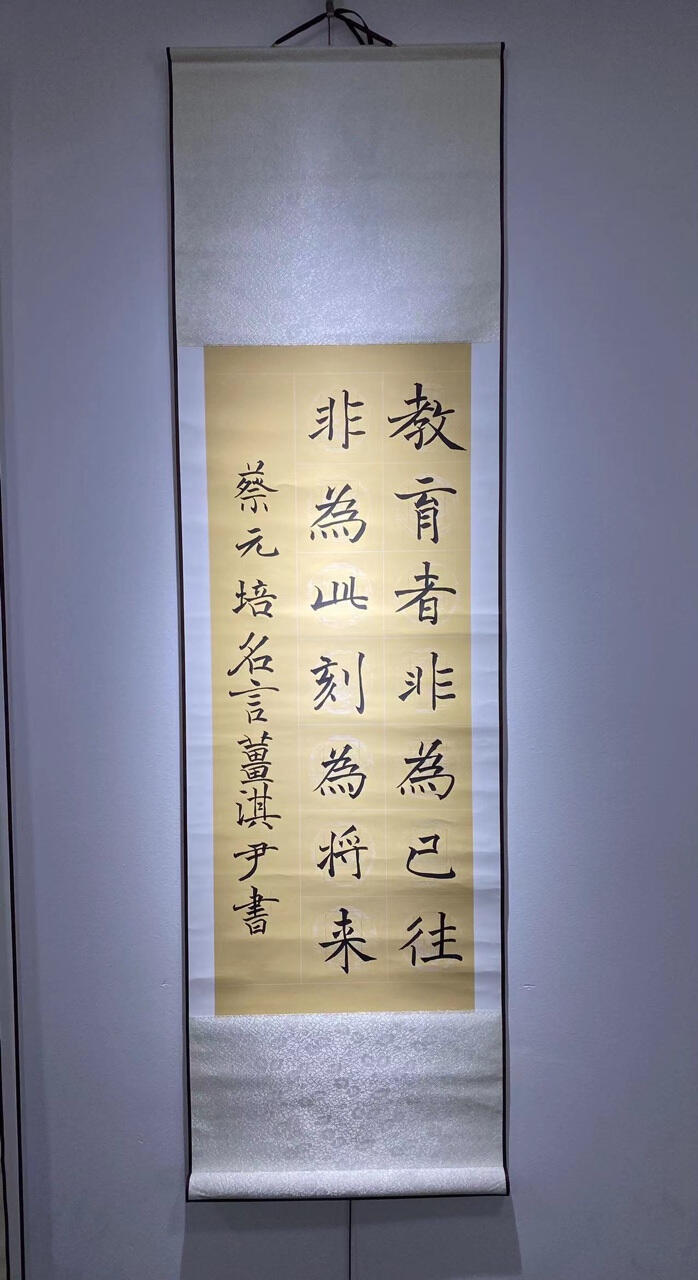 教育者非為已往
非為此刻為将来
蔡元培名言薑淇尹書